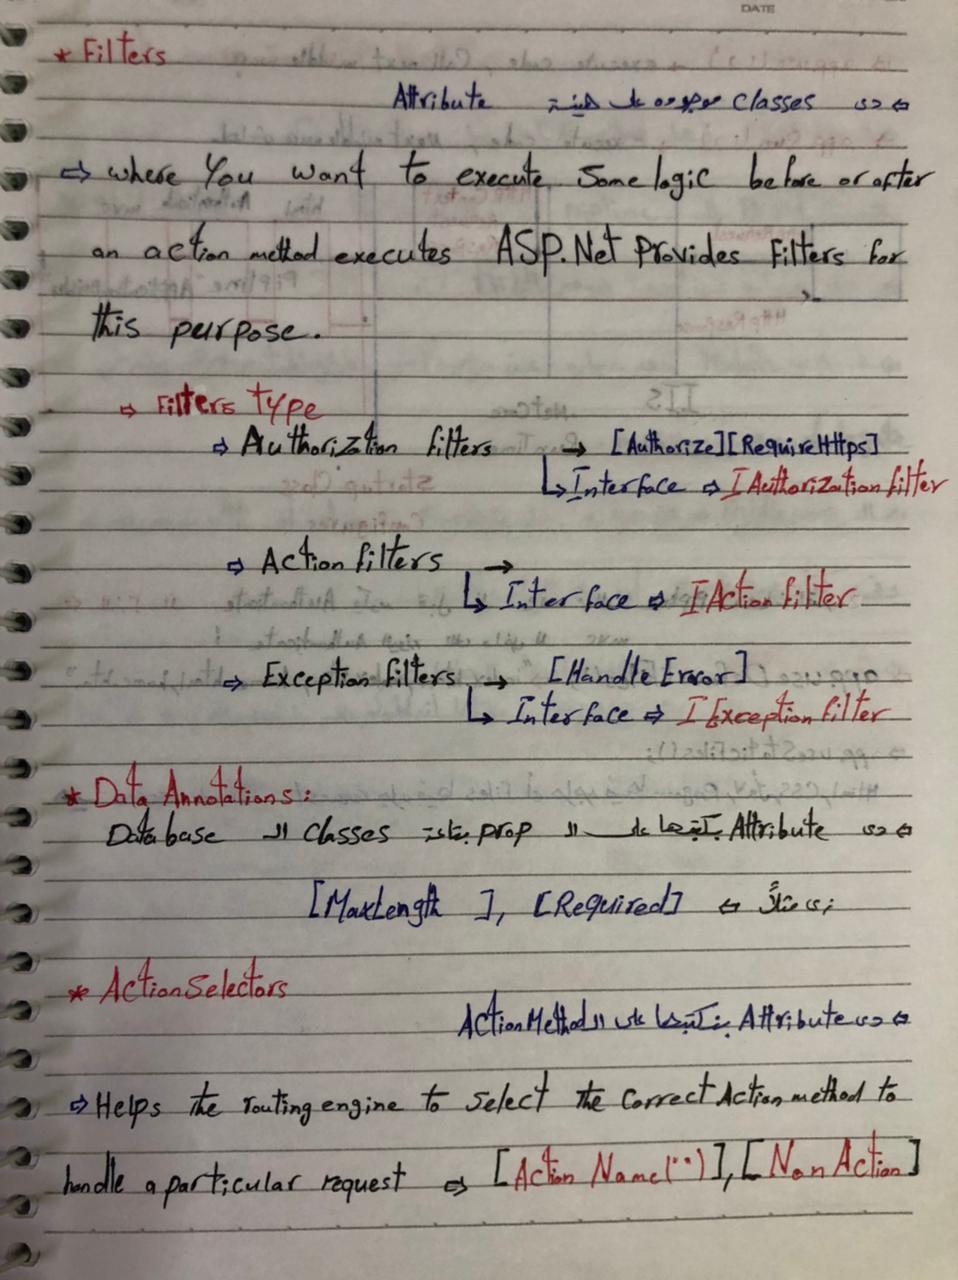 DATE
* Filters
⇐ دى classes موجوده على هيئة Attribute
⇒ where You want to execute Some logic before or after
an action method executes ASP.Net Provides Filters for
this purpose.
⇒ Filters Type
⇒ Authoriztion filters → [Authorize][RequireHttps]
↳ Interface ⇒ IAuthorization filter
⇒ Action filters →
↳ Interface ⇒ IAction filter
⇒ Exception filters → [Handle Error]
↳ Interface ⇒ IException filter
* Data Annotations:
⇐ دى Attribute بكتبها على الـ prop بتاعة classes الـ Database
زى مثلاً ⇐ [Required], [MaxLength ]
* ActionSelectors
⇐ دى Attribute بنكتبها على الـ ActionMethod
⇒ Helps the routing engine to Select the Correct Action method to
handle a particular request ⇒ [Action Name("")],[Non Action]